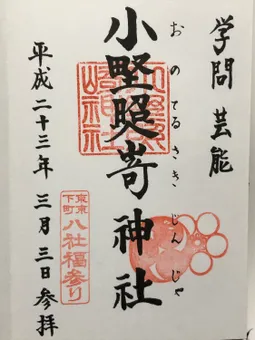 学問 芸能
小野照嵜神社
おのてるさきじんじゃ
平成二十三年 三月 三日参拝
小野照
崎神社
東京
下町
八社福参り